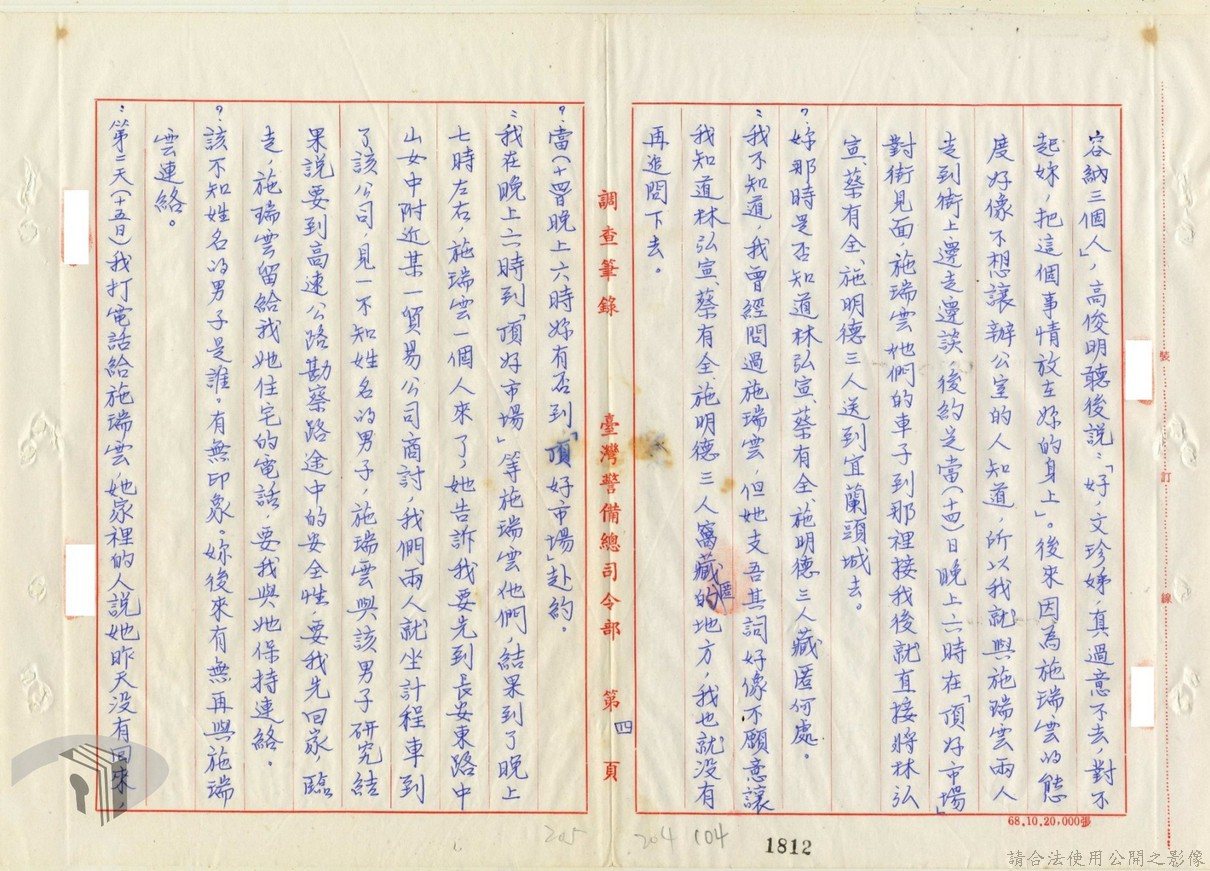 容納三個人」，高俊明聽後說：「好，文珍姊，真過意不去，對不
起妳，把這個事情放在妳的身上」。後來因為施瑞雲的態
度好像不想讓辦公室的人知道，所以我就與施瑞雲兩人
走到街上邊走邊談，後約定當(十四)日晚上六時在「頂好市場」
對街見面，施瑞雲她們的車子到那裡接我後就直接將林弘
宣、蔡有全、施明德三人送到宜蘭頭城去。
？：妳那時是否知道林弘宣、蔡有全、施明德三人藏匿何處。
：我不知道，我曾經問過施瑞雲，但她支吾其詞好像不願意讓
我知道林弘宣、蔡有全施明德三人窩藏匿的地方，我也就沒有
再追問下去。
調查筆錄 臺灣警備總司令部 第四頁
？：當(十四)晚上六時妳有否到「頂好市場」赴約。
：我在晚上六時到「頂好市場」等施瑞雲他們，結果到了晚上
七時左右，施瑞雲一個人來了，她告訴我要先到長安東路中
山女中附近某一貿易公司商討，我們兩人就坐計程車到
了該公司，見一不知姓名的男子，施瑞雲與該男子研究結
果說要到高速公路勘察路途中的安全性，要我先回家，臨
走，施瑞雲留給我她住宅的電話，要我與她保持連絡。
？：該不知姓名的男子是誰，有無印象。妳後來有無再與施瑞
雲連絡。
：第二天(十五日)我打電話給施瑞雲她家裡的人說她昨天沒有回來，
裝
訂
線
68.10.20,000張
205
204
104
1812
請合法使用公開之影像